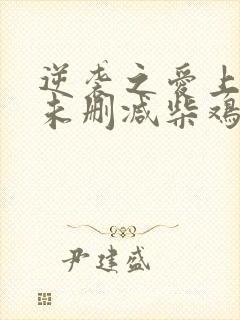 逆袭之爱上
未删减柴鸡
尹建盛